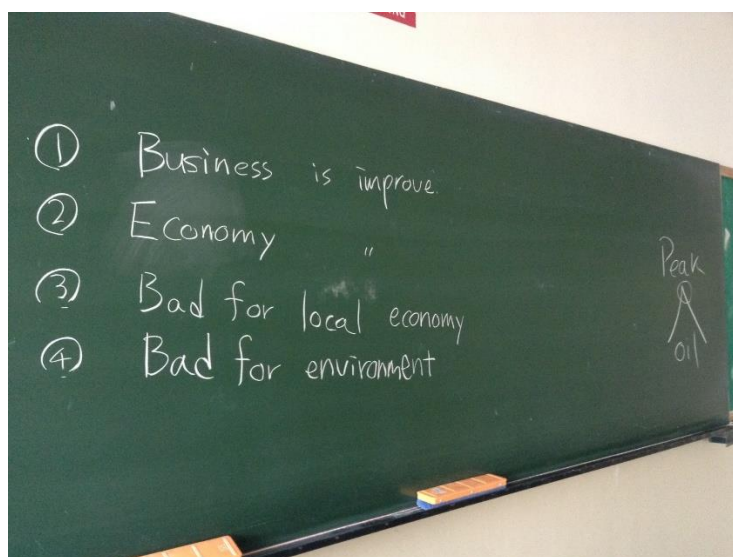 ① Business is improve.
② Economy "
③ Bad for local economy
④ Bad for environment
Peak
oil